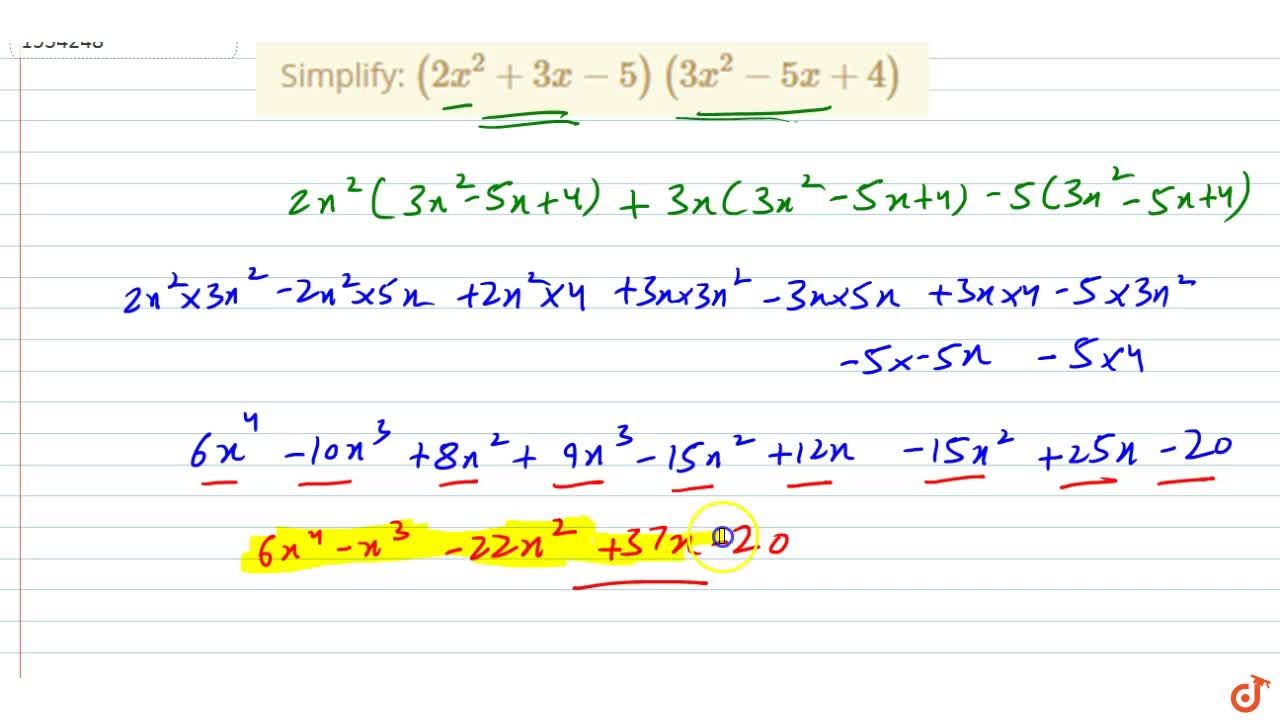 Simplify: (2x² + 3x − 5) (3x² − 5x + 4)
2x²(3x²-5x+4) + 3x(3x²-5x+4) -5(3x²-5x+4)
2x²×3x² -2x²×5x +2x²×4 +3x×3x² -3x×5x +3x×4 -5×3x²
-5×-5x -5×4
6x⁴ -10x³ +8x² + 9x³ -15x² +12x -15x² +25x -20
6x⁴ -x³ -22x² +37x -20